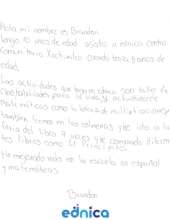 Hola mi nombre es Brandon
tengo 10 años de edad asisto a ednica centro
comunitario Xochimilco cuando tenía 8 años de
edad,
Las actividades que hago en ednica son taller de
Habilidades para la vida, y actividades
Matemáticas como la tabla de multiplicaciones
también leemos en las colmenas y he ido a la
feria del libro 4 veces y he comprado diferen
tes libros como El Principito.
He mejorado más en la escuela en español
y matemáticas.
Brandon
ednica